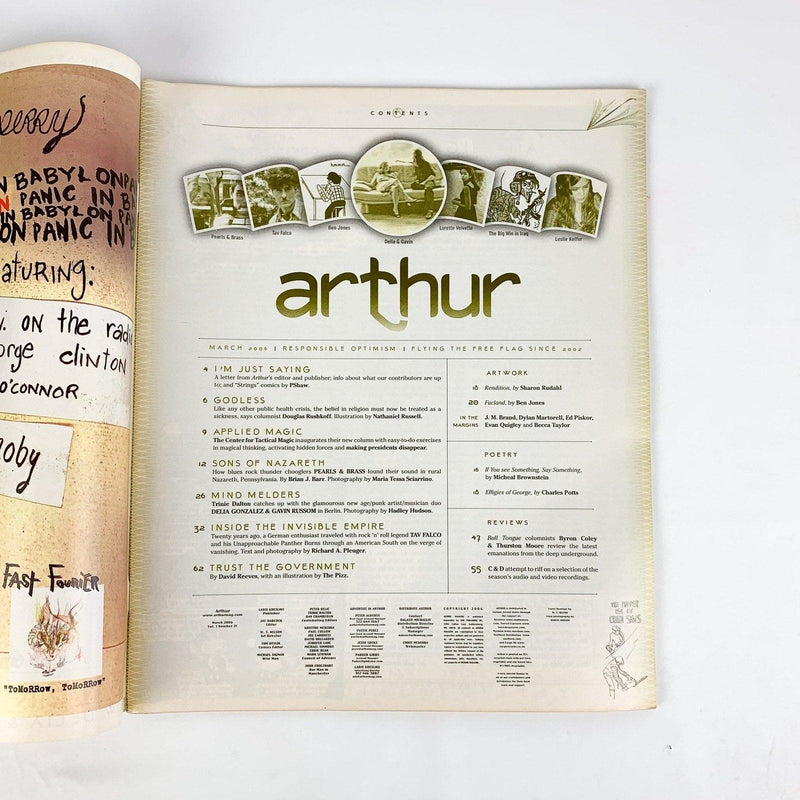 PERRY
N BABYLON PA
N PANIC IN B
IN BABYLON PA
ON PANIC IN B
ATURING:
ON the radi
orge clinton
O'CONNOR
moby
FAST FOURIER
"ToMoRRow, ToMoRRoW"
CONTENTS
Pearls & Brass
Tav Falco
Ben Jones
Delia & Gavin
Lorette Velvette
The Big Win in Iraq
Leslie Keffer
arthur
MARCH 2006 | RESPONSIBLE OPTIMISM | FLYING THE FREE FLAG SINCE 2002
4 I'M JUST SAYING
A letter from Arthur's editor and publisher; info about what our contributors are up
to; and "Strings" comics by PShaw.
6 GODLESS
Like any other public health crisis, the belief in religion must now be treated as a
sickness, says columnist Douglas Rushkoff. Illustration by Nathaniel Russell.
9 APPLIED MAGIC
The Center for Tactical Magic inaugurates their new column with easy-to-do exercises
in magical thinking, activating hidden forces and making presidents disappear.
12 SONS OF NAZARETH
How blues rock thunder chooglers PEARLS & BRASS found their sound in rural
Nazareth, Pennsylvania. By Brian J. Barr. Photography by Maria Tessa Sciarrino.
26 MIND MELDERS
Trinie Dalton catches up with the glamourous new age/punk artist/musician duo
DELIA GONZALEZ & GAVIN RUSSOM in Berlin. Photography by Hadley Hudson.
32 INSIDE THE INVISIBLE EMPIRE
Twenty years ago, a German enthusiast traveled with rock 'n' roll legend TAV FALCO
and his Unapproachable Panther Burns through an American South on the verge of
vanishing. Text and photography by Richard A. Pleuger.
62 TRUST THE GOVERNMENT
By David Reeves, with an illustration by The Pizz.
ARTWORK
16 Rendition, by Sharon Rudahl
20 Fucland, by Ben Jones
IN THE MARGINS J. M. Brand, Dylan Martorell, Ed Piskor,
Evan Quigley and Becca Taylor
POETRY
16 If You See Something, Say Something,
by Micheal Brownstein
18 Effigies of George, by Charles Potts
REVIEWS
47 Bull Tongue columnists Byron Coley
& Thurston Moore review the latest
emanations from the deep underground.
55 C & D attempt to riff on a selection of the
season's audio and video recordings.
Arthur
www.arthurmag.com
March 2006
ADVERTISE IN ARTHUR
DISTRIBUTE ARTHUR
COPYRIGHT 2006